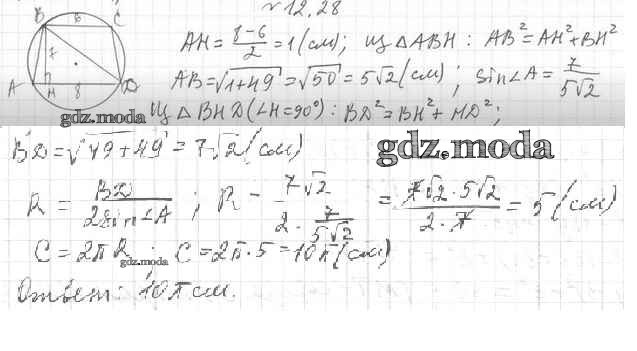 № 12.28
B 6 C
7
A H 8 D
AH = (8-6)/2 = 1 (см); из △ABH : AB² = AH² + BH²
AB = √(1+49) = √50 = 5√2 (см); sin∠A = 7/(5√2)
gdz.moda
Из △BHD (∠H = 90°) : BD² = BH² + HD²;
BD = √(49+49) = 7√2 (см)
gdz.moda
R = BD/(2sin∠A); R = 7√2/(2·7/(5√2)) = (7√2·5√2)/(2·7) = 5 (см)
C = 2πR; C = 2π·5 = 10π (см)
gdz.moda
Ответ: 10π см.